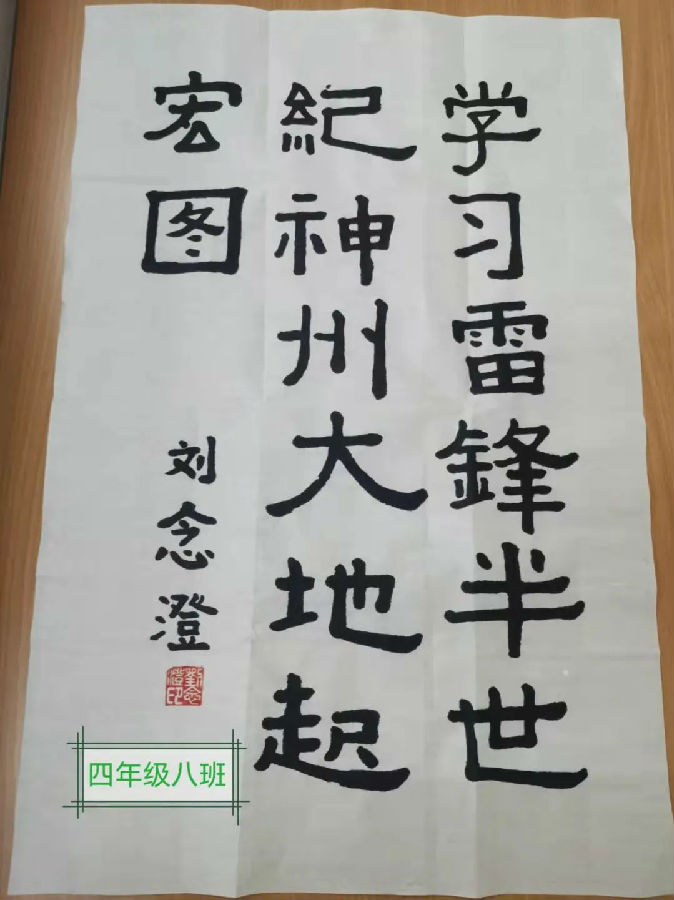 学习雷鋒半世
紀神州大地起
宏图
刘念澄
劉念澄印
四年级八班